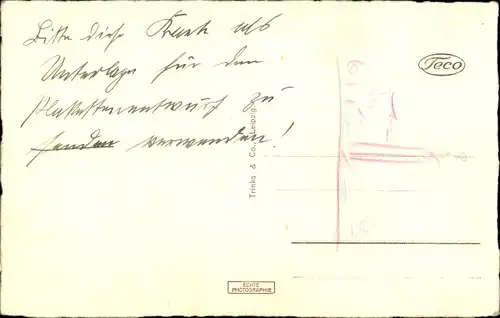 Bitte diese Karte als
Unterlage für den
Plakettenentwurf zu
senden verwenden!
Teco
Trinks & Co., Leipzig
ECHTE
PHOTOGRAPHIE